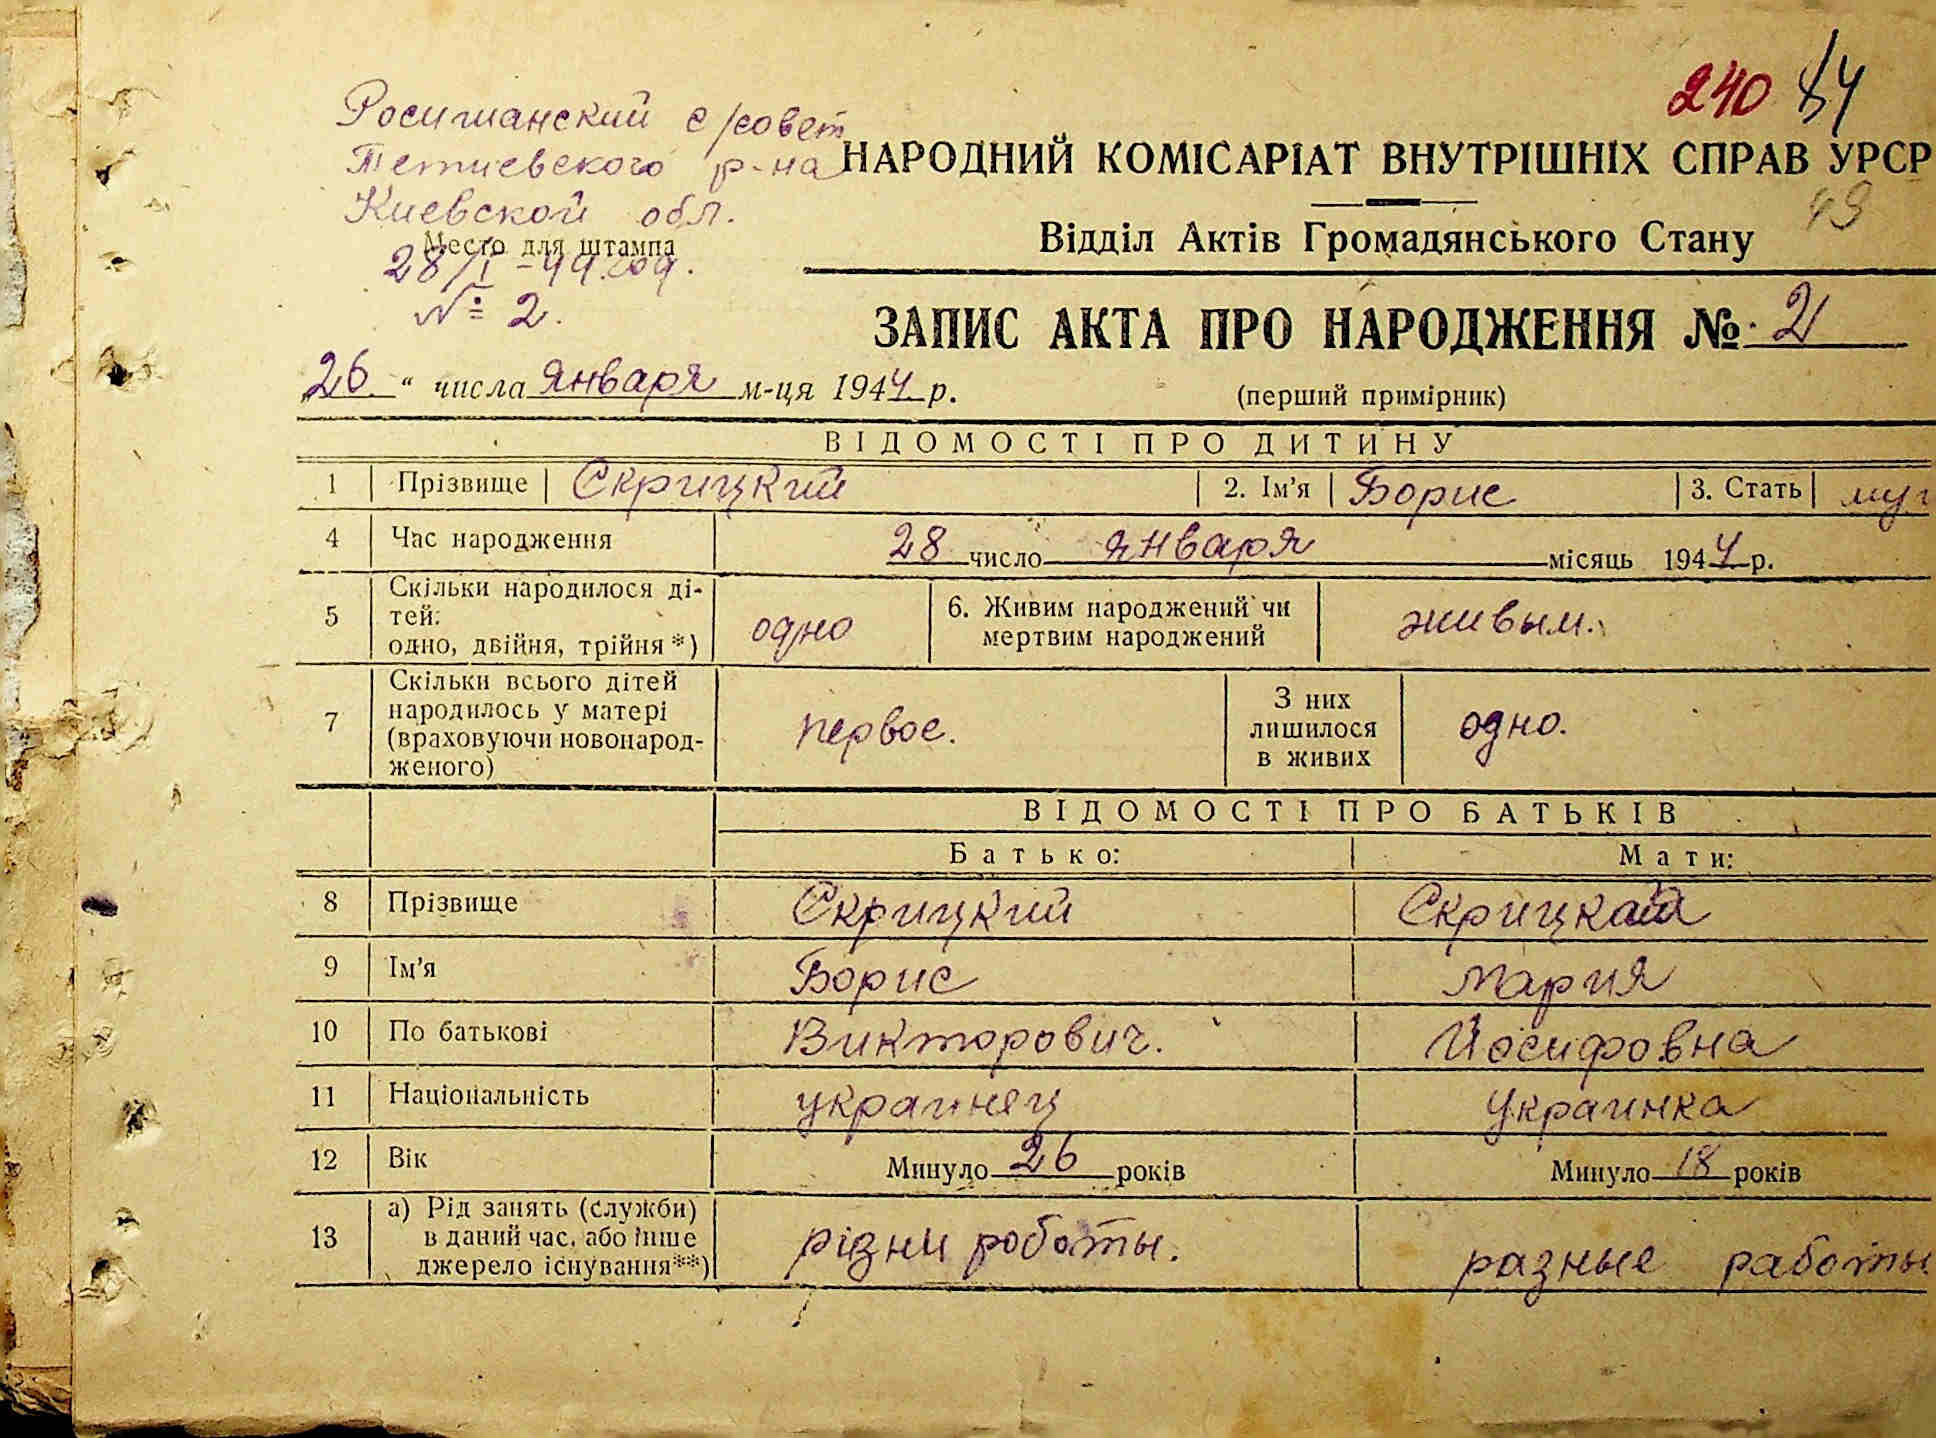 240 84
Росишанский с/совет
Тетиевского р-на
Киевской обл.
Место для штампа
28/I-44 год.
№ 2.
НАРОДНИЙ КОМІСАРІАТ ВНУТРІШНІХ СПРАВ УРСР
49
Відділ Актів Громадянського Стану
ЗАПИС АКТА ПРО НАРОДЖЕННЯ № 2
26 " числа января м-ця 1944 р. (перший примірник)
ВІДОМОСТІ ПРО ДИТИНУ
1 Прізвище Скрицкий 2. Ім'я Борис 3. Стать
4 Час народження 28 число января місяць 1944 р.
5 Скільки народилося ді-
тей:
одно, двійня, трійня *)
одно
6. Живим народжений чи
мертвим народжений
живым.
7 Скільки всього дітей
народилось у матері
(враховуючи новонарод-
женого)
первое.
З них
лишилося
в живих
одно.
ВІДОМОСТІ ПРО БАТЬКІВ
Батько: Мати:
8 Прізвище Скрицкий Скрицкая
9 Ім'я Борис Мария
10 По батькові Викторович. Йосифовна
11 Національність украинец Украинка
12 Вік Минуло 26 років Минуло 18 років
13 а) Рід занять (служби)
в даний час, або інше
джерело існування**)
різни роботы. разные работы